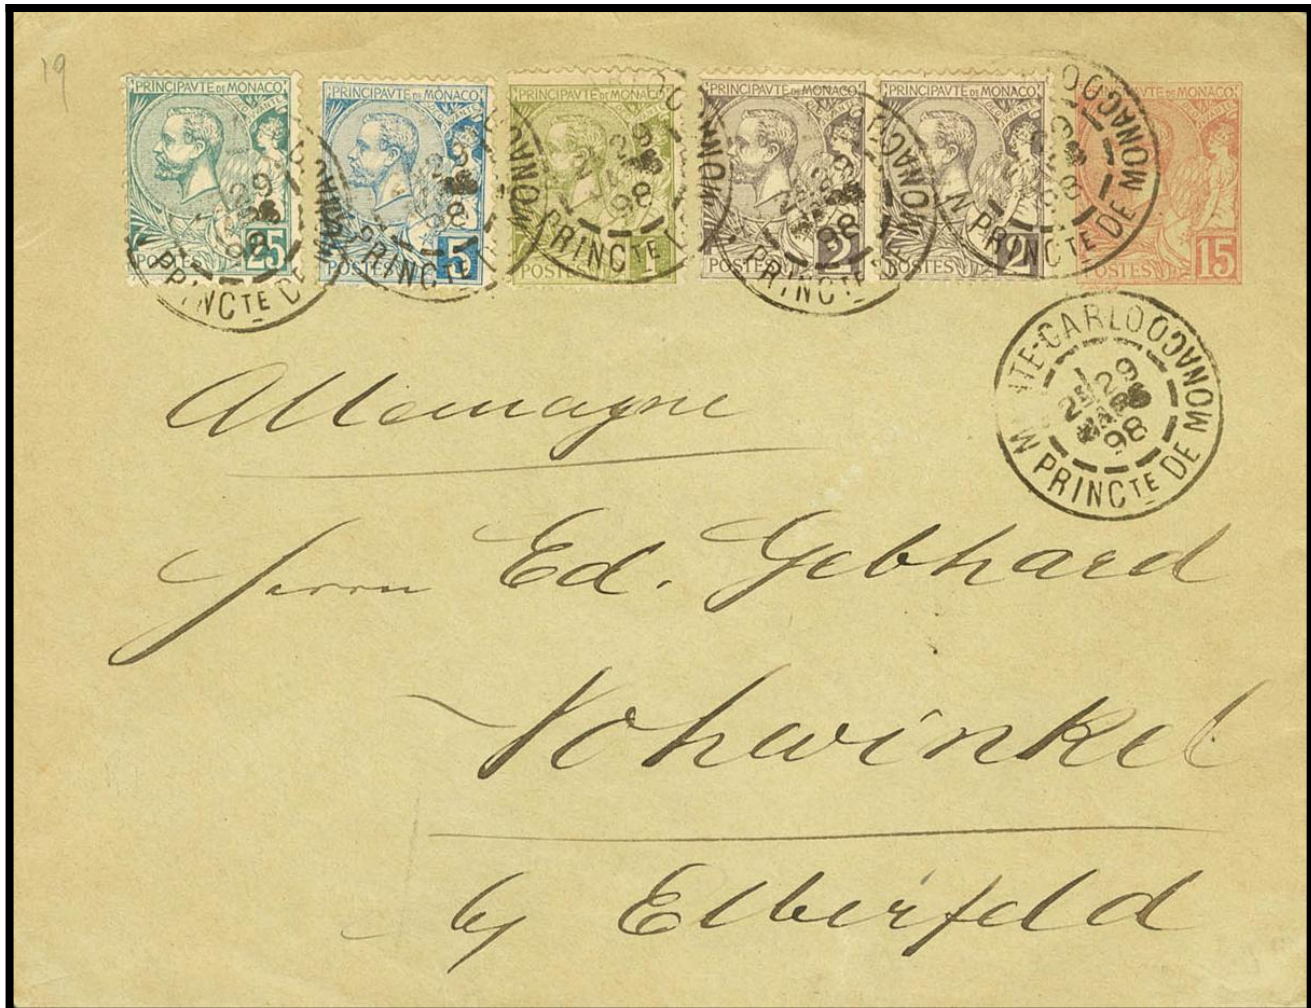 19
PRINCIPAVTE DE MONACO
POSTES 25
PRINCIPAVTE DE MONACO
POSTES 5
PRINCIPAVTE DE MONACO
POSTES 1
PRINCIPAVTE DE MONACO
POSTES 2
PRINCIPAVTE DE MONACO
2
POSTES 15
MONTE-CARLO MONACO
29
MARS
98
PRINCTE DE MONACO
Allemagne
Herrn Ed. Gebhard
Vohwinkel
by Elberfeld